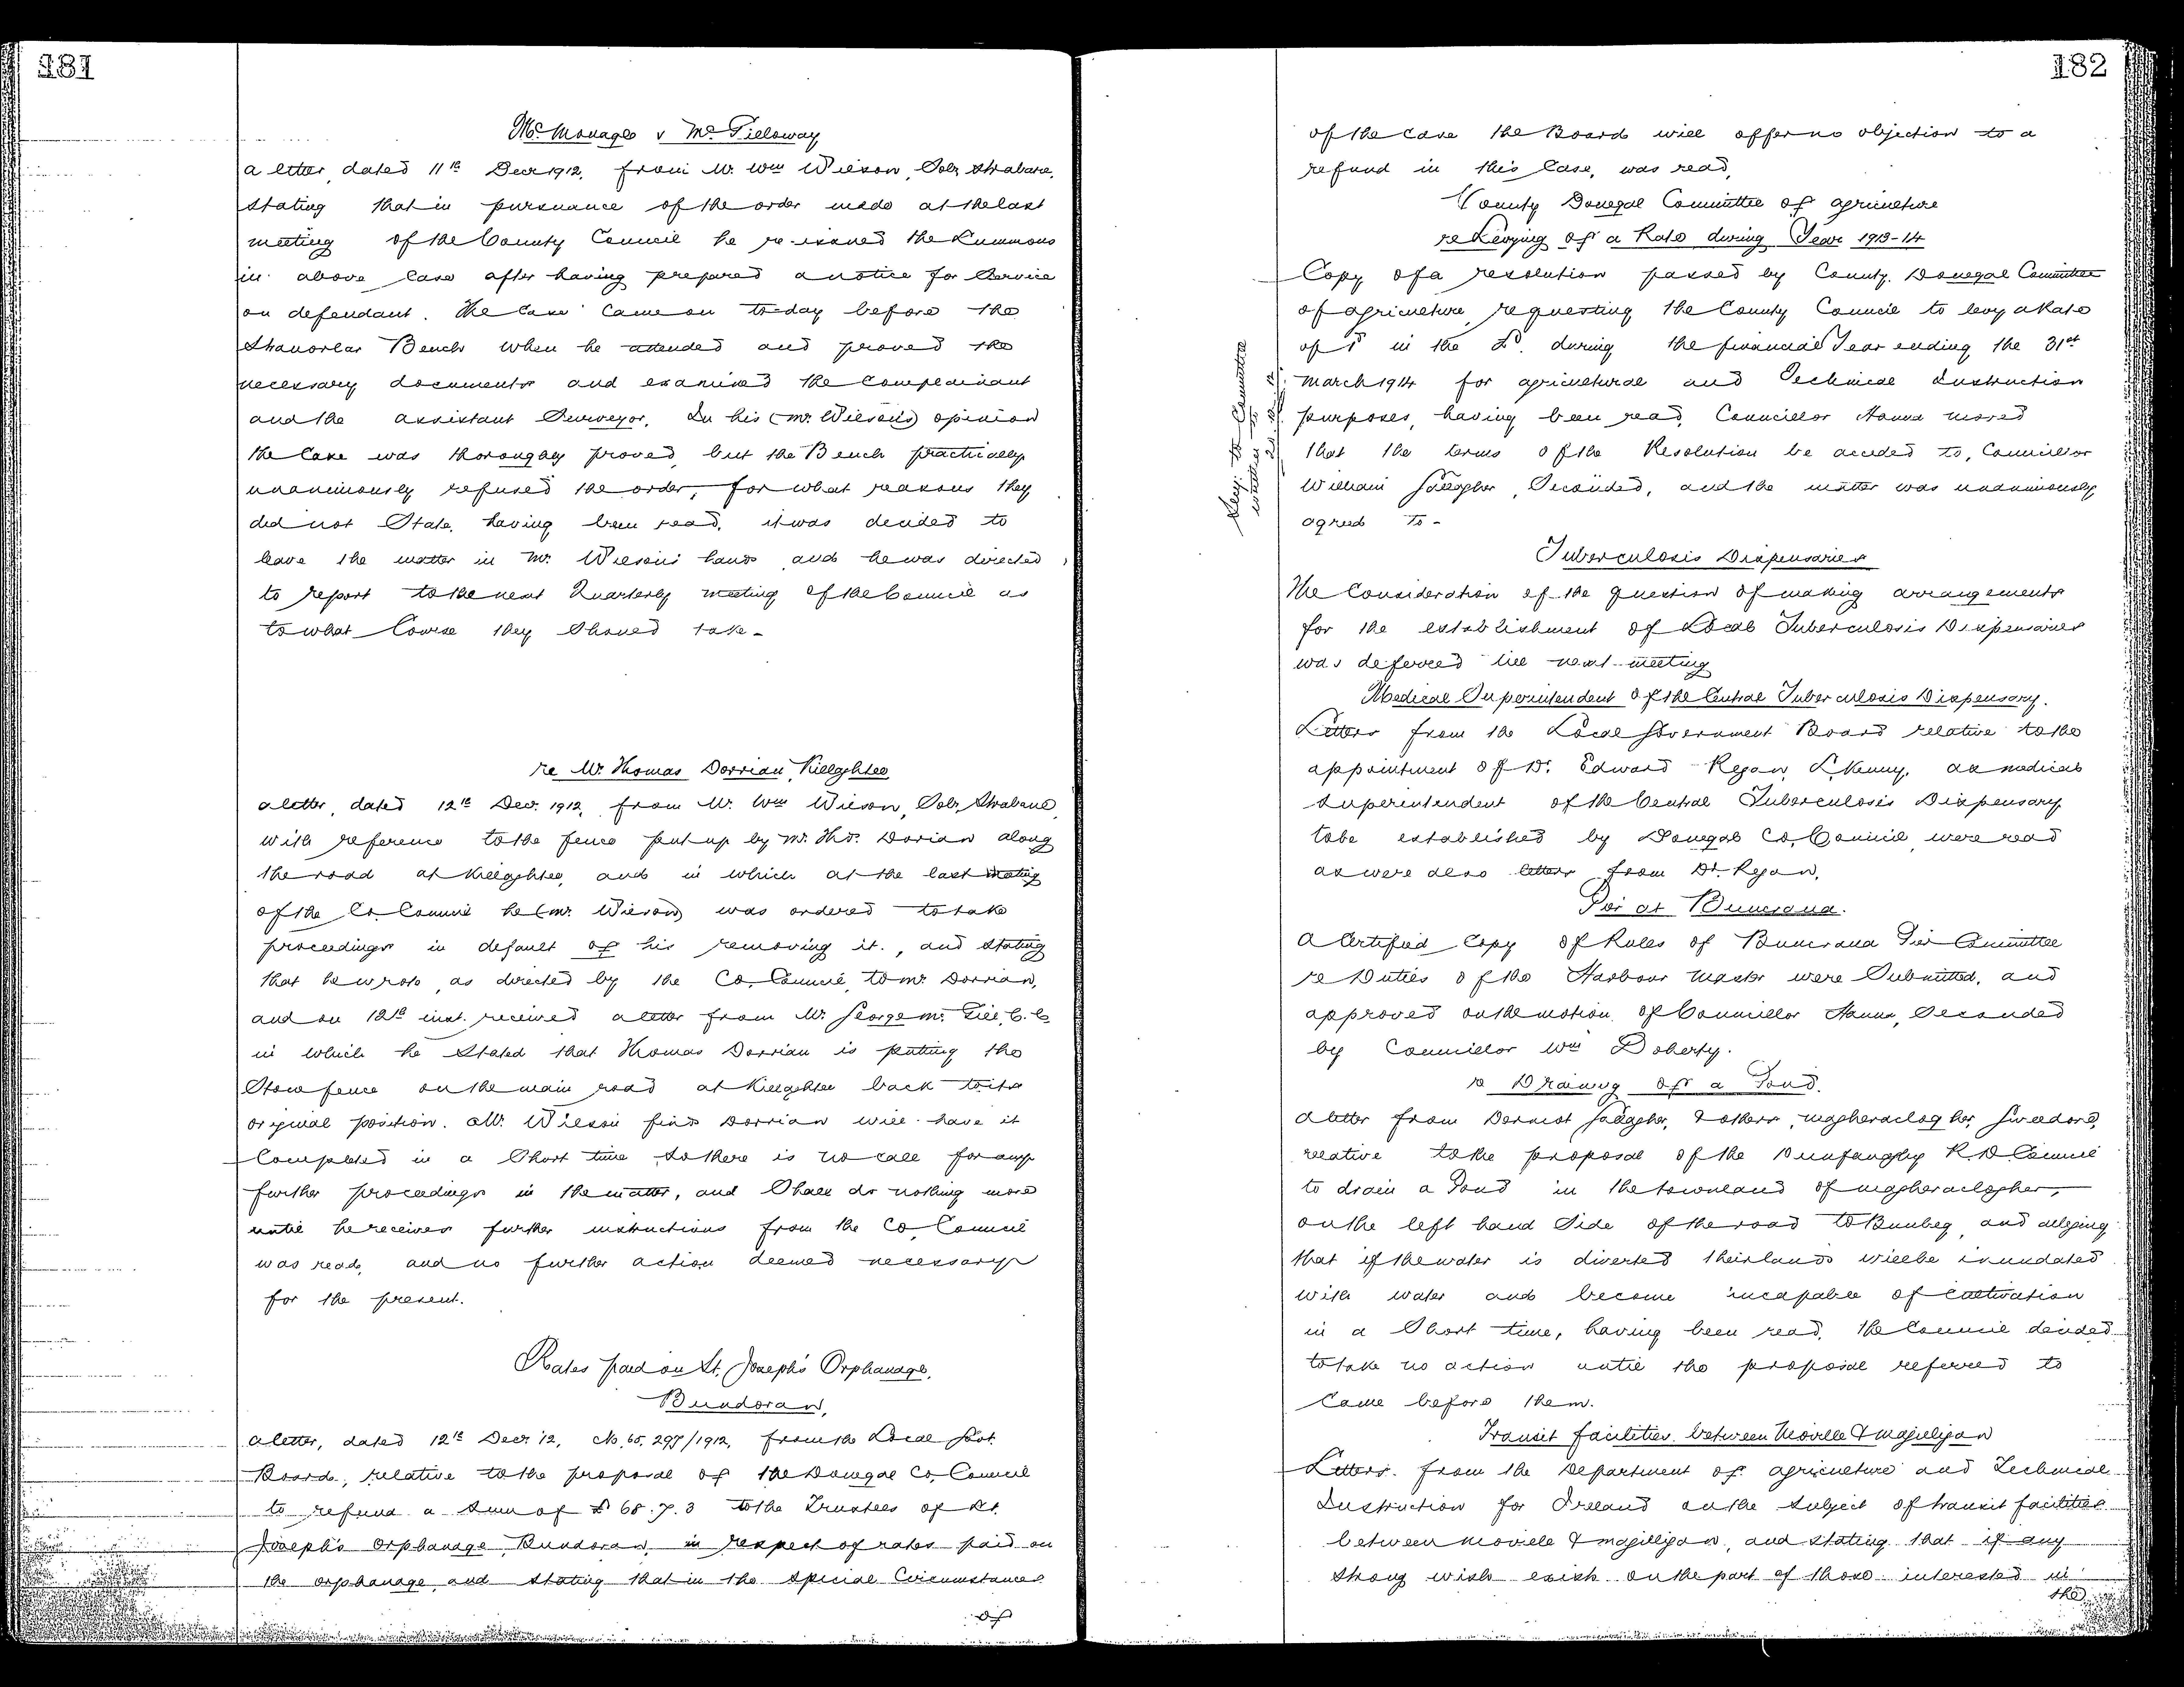 181
McMonagle v McGilloway
a letter dated 11th Decr 1912, from Mr. Wm Wilson, Solr, Strabane,
stating that in pursuance of the order made at the last
meeting of the County Council he re-issued the Summons
in above Case after having prepared a notice for Service
on defendant. The Case came on to-day before the
Stranorlar Bench when he attended and proved the
necessary documents and examined the Complainant
and the assistant Surveyor. In his (Mr. Wilson's) opinion
the Case was thoroughly proved, but the Bench practically
unanimously refused the order, for what reasons they
did not State, having been read, it was decided to
leave the matter in Mr. Wilson's hands and he was directed
to report to the next Quarterly meeting of the Council as
to what Course they Should take -
re Mr. Thomas Dorrian, Killaghtee
a letter, dated 12th Decr. 1912, from Mr. Wm Wilson, Solr, Strabane,
with reference to the fence put up by Mr. Ths. Dorian along
the road at Killaghtee, and in which at the last meeting
of the Co. Council he (Mr. Wilson) was ordered to take
proceedings in default of his removing it., and stating
that he wrote, as directed by the Co. Council, to Mr. Dorrian,
and on 12th inst. received a letter from Mr. George Mc. Gill, C.S.
in which he Stated that Thomas Dorrian is putting the
Stone fence on the main road at Killaghtee back to its
original position. Mr. Wilson finds Dorrian will have it
Completed in a Short time so there is no call for any
further proceedings in the matter, and Shall do nothing more
until he receives further instructions from the Co. Council
was read, and no further action deemed necessary
for the present.
Rates paid on St. Joseph's Orphanage,
Bundoran,
a letter, dated 12th Decr '12, No. 65,297/1912, from the Local Govt.
Board, relative to the proposal of the Donegal Co. Council
to refund a Sum of £68.7.3 to the Trustees of St.
Joseph's Orphanage, Bundoran, in respect of rates paid on
the orphanage, and stating that in the Special Circumstances
of
182
of the Case the Board will offer no objection to a
refund in this Case, was read,
County Donegal Committee of agriculture
re Levying of a Rate during Year 1913-14
Copy of a resolution passed by County Donegal Committee
of agriculture, requesting the County Council to levy a Rate
of 1d in the £. during the financial Year ending the 31st
March 1914 for agricultural and Technical Instruction
purposes, having been read, Councillor Hanna moved
that the terms of the Resolution be acceded to, Councillor
William Gallagher, Seconded, and the matter was unanimously
agreed to -
Secy. to Committee
Tuberculosis Dispensaries
The Consideration of the question of making arrangements
for the establishment of Local Tuberculosis Dispensaries
was deferred till next meeting
Medical Superintendent of the Central Tuberculosis Dispensary.
Letters from the Local Government Board relative to the
appointment of Dr. Edward Regan, as medical
Superintendent of the Central Tuberculosis Dispensary
to be established by Donegal Co. Council, were read
as were also letters from Dr. Regan.
Pier at Buncrana.
A Certified Copy of Rules of Buncrana Pier Committee
re Duties of the Harbour Master were Submitted, and
approved on the motion of Councillor Hanna, Seconded
by Councillor Wm Doherty.
re Draining of a Pond.
a letter from Dermot Gallagher, & others, Magheraclogher, Gweedore,
relative to the proposal of the Dunfanaghy R.D. Council
to drain a Pond in the townland of Magheraclogher,
on the left hand Side of the road to Bunbeg, and alleging
that if the water is diverted their lands will be inundated
with water and become incapable of cultivation
in a Short time, having been read, the Council decided
to take no action until the proposal referred to
Came before them.
Transit facilities between Moville & Magilligan
Letters from the Department of agriculture and Technical
Instruction for Ireland on the Subject of transit facilities
between Moville & Magilligan, and stating that if any
strong wish exists on the part of those interested in
the